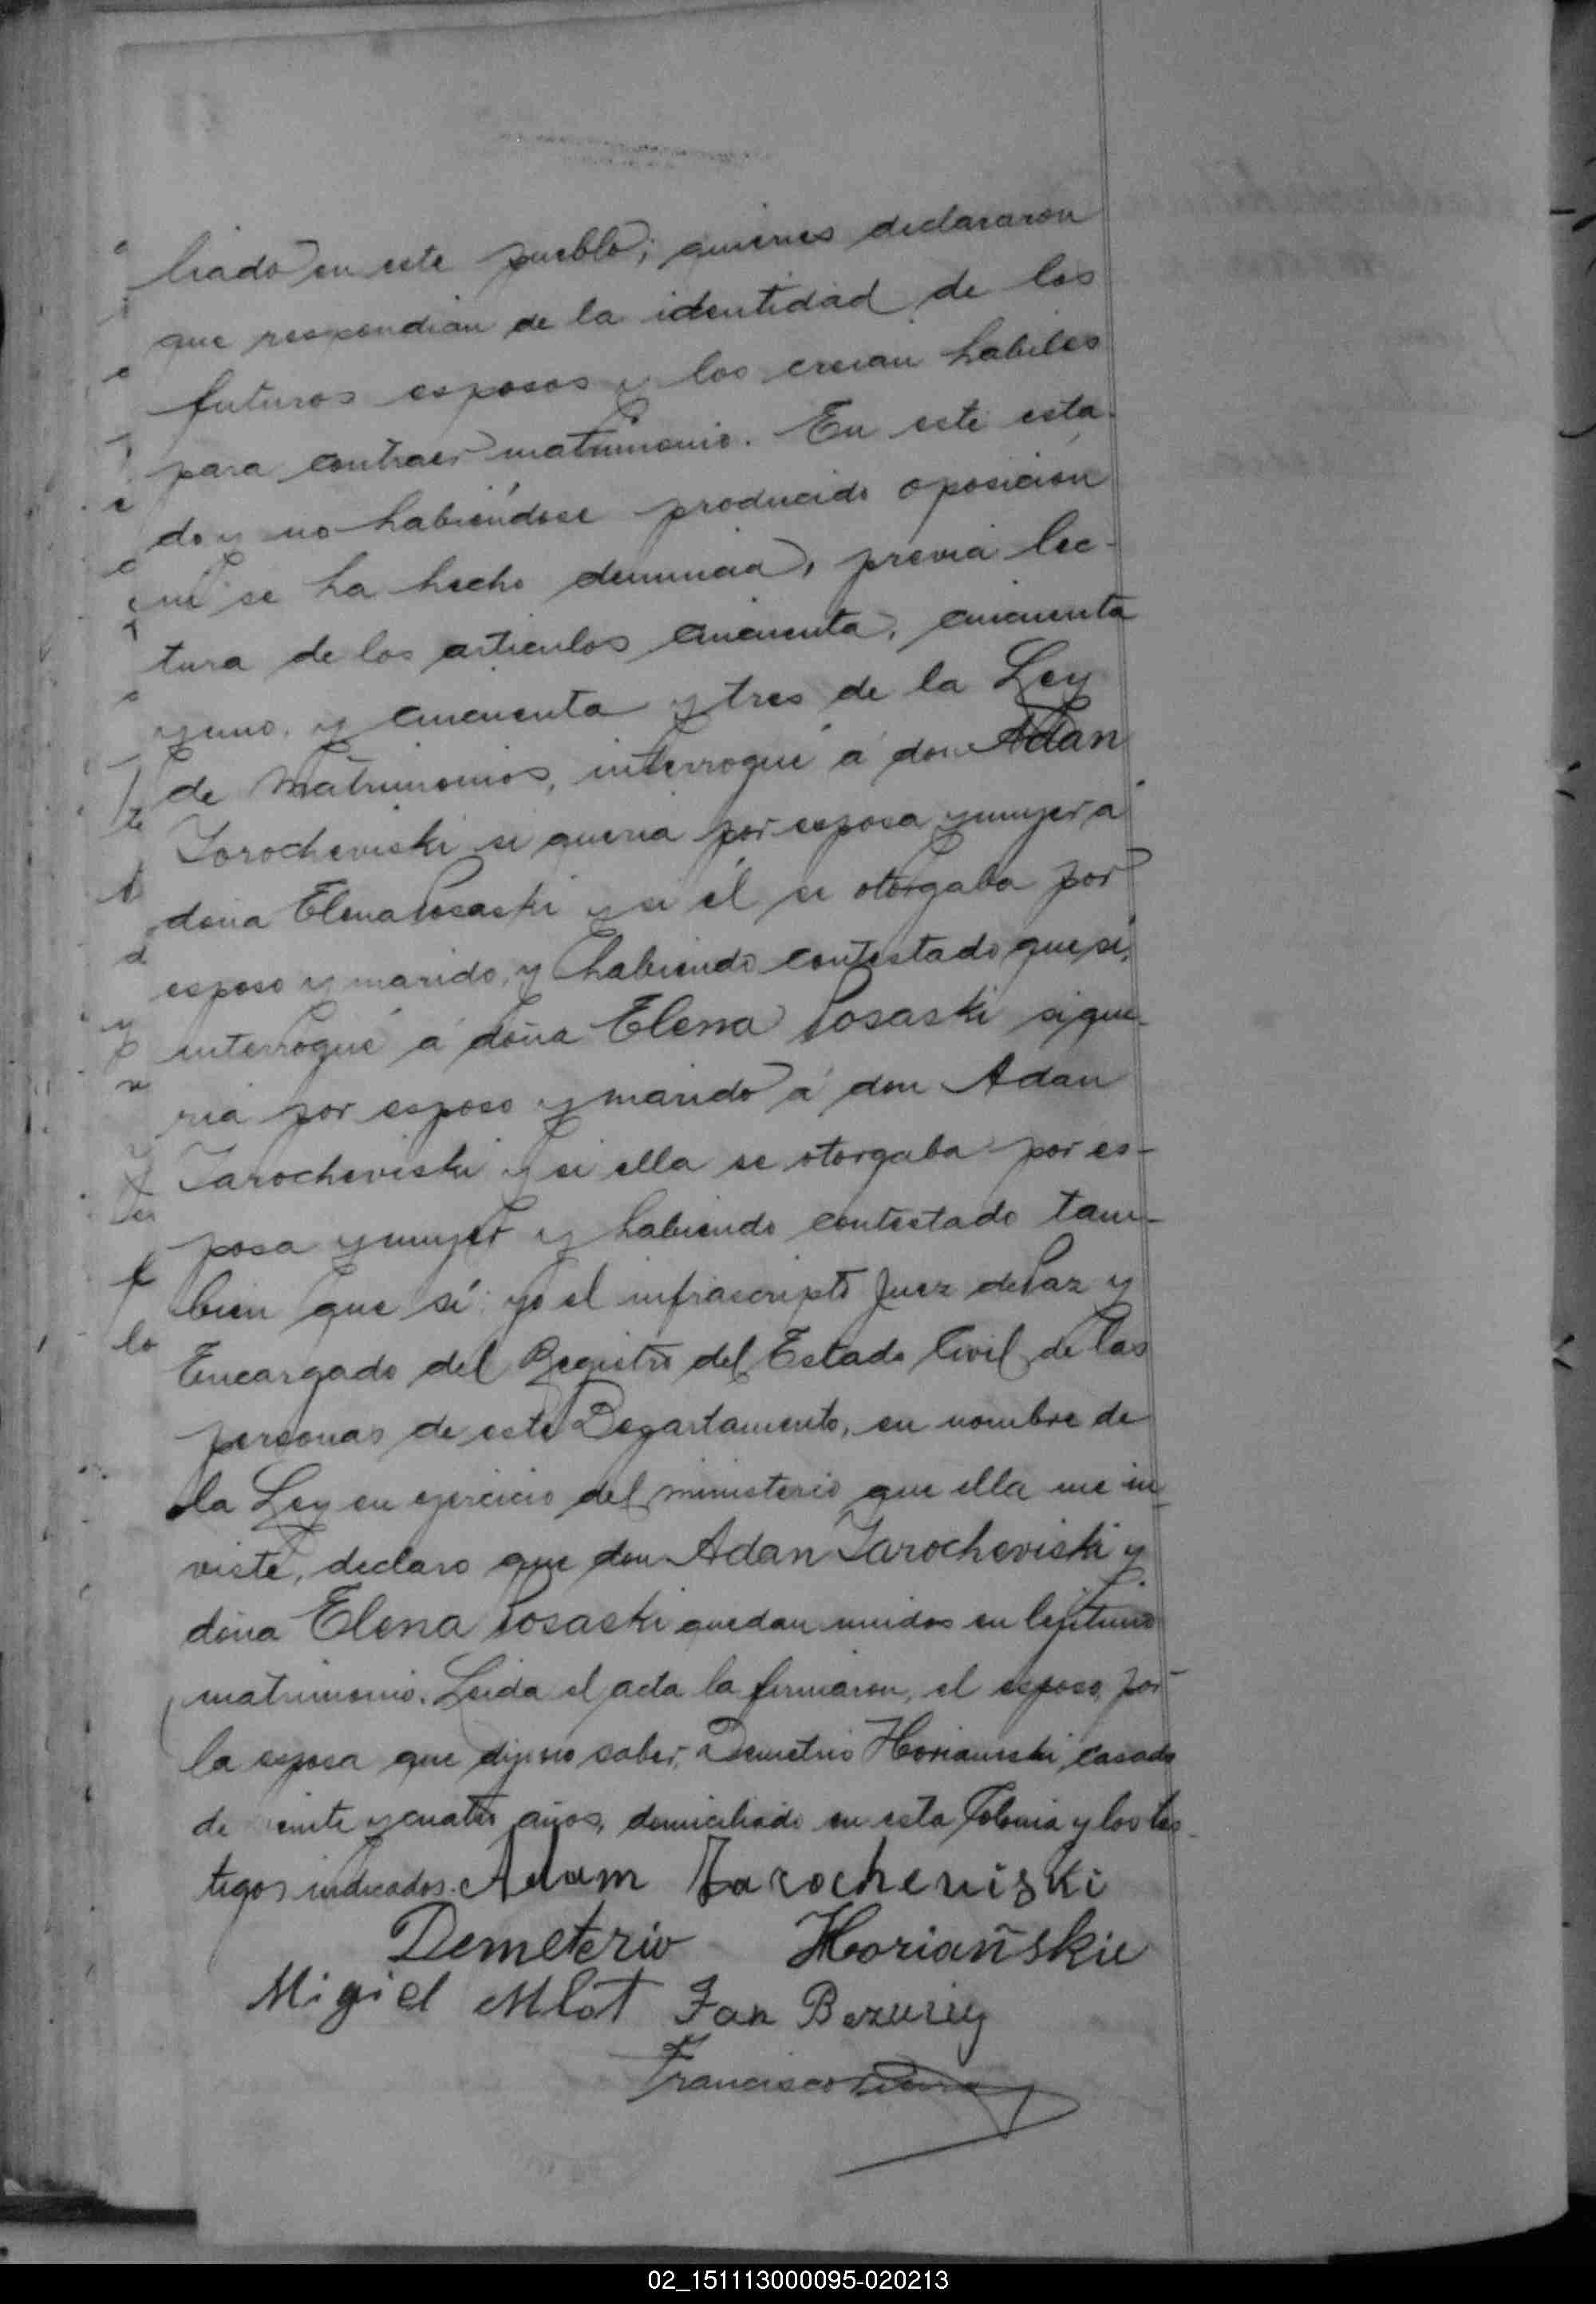 liado en este pueblo; quienes declararon
que respondian de la identidad de los
futuros esposos y los creian habiles
para contraer matrimonio. En este esta-
do y no habiéndose producido oposicion
ni se ha hecho denuncia, previa lec-
tura de los articulos cincuenta, cincuenta
y uno, y cincuenta y tres de la Ley
de Matrimonios, interrogué á don Adan
Jarocheviski si queria por esposa y mujer á
doña Elena Posaski y si él se otorgaba por
esposo y marido, y habiendo contestado que si,
interrogué á doña Elena Posaski si que-
ria por esposo y marido á don Adan
Jarocheviski y si ella se otorgaba por es-
posa y mujer y habiendo contestado tam-
bien que sí: yo el infrascripto Juez de Paz y
Encargado del Registro del Estado Civil de las
personas de este Departamento, en nombre de
la Ley en ejercicio del ministerio que ella me in-
viste, declaro que don Adan Jarocheviski y
doña Elena Posaski quedan unidos en lejitimo
matrimonio. Leida el acta la firmaron, el esposo, por
la esposa que dijo no saber, Demetrio Horianski, casado
de veinte y cuatro años, domiciliado en esta Colonia y los tes-
tigos indicados. Adam Jarocheviski
Demeterio Horiañskie
Migiel Mlot Jan Bezuriy
Francisco
02_151113000095-020213